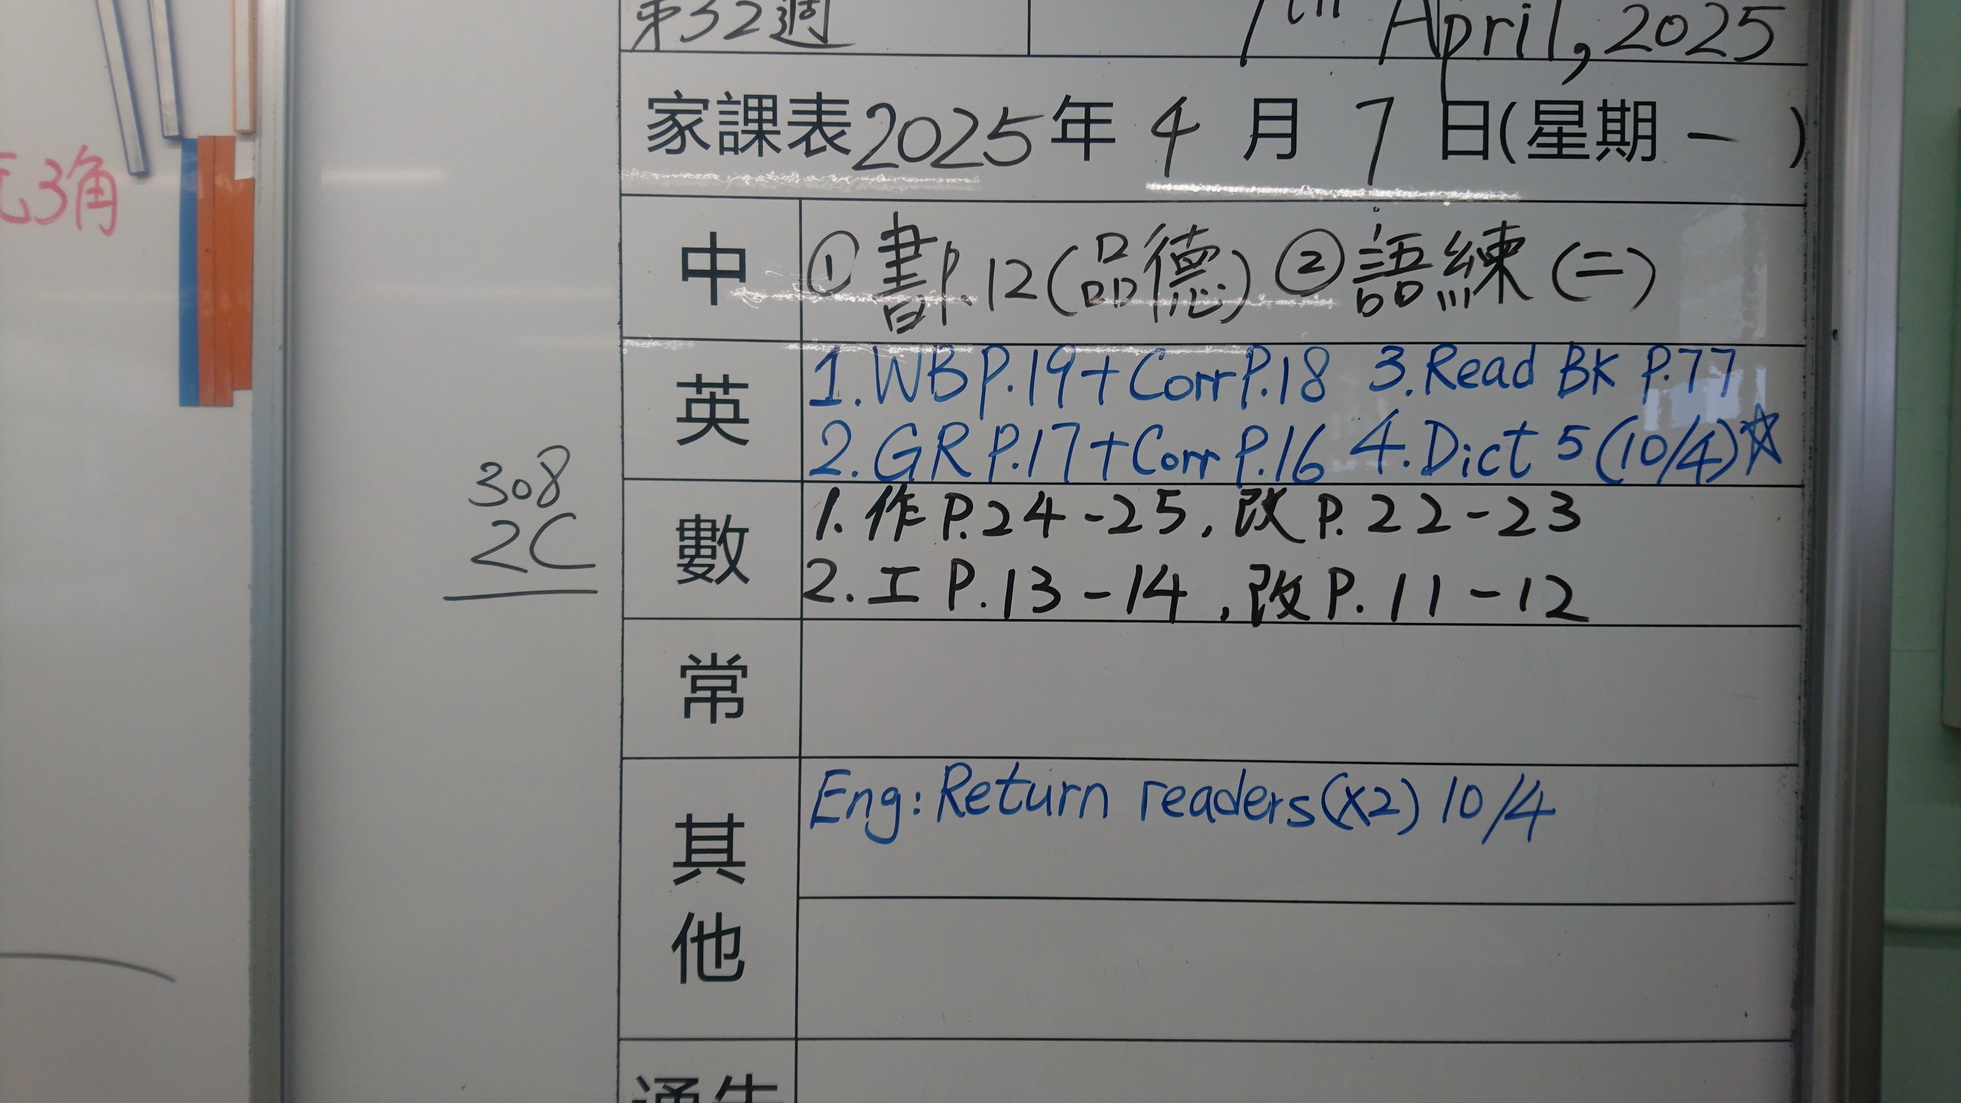 第32週
7th April, 2025
家課表2025年 4 月 7 日(星期 一 )
元3角
中
①書P.12(品德) ②語練(二)
英
1. WB P.19+Corr P.18 3. Read BK P.77
2. GR P.17+Corr P.16 4. Dict 5 (10/4)☆
308
2C
數
1. 作 P.24-25, 改 P.22-23
2. 工 P.13-14, 改 P.11-12
常
其他
Eng: Return readers(x2) 10/4
通告